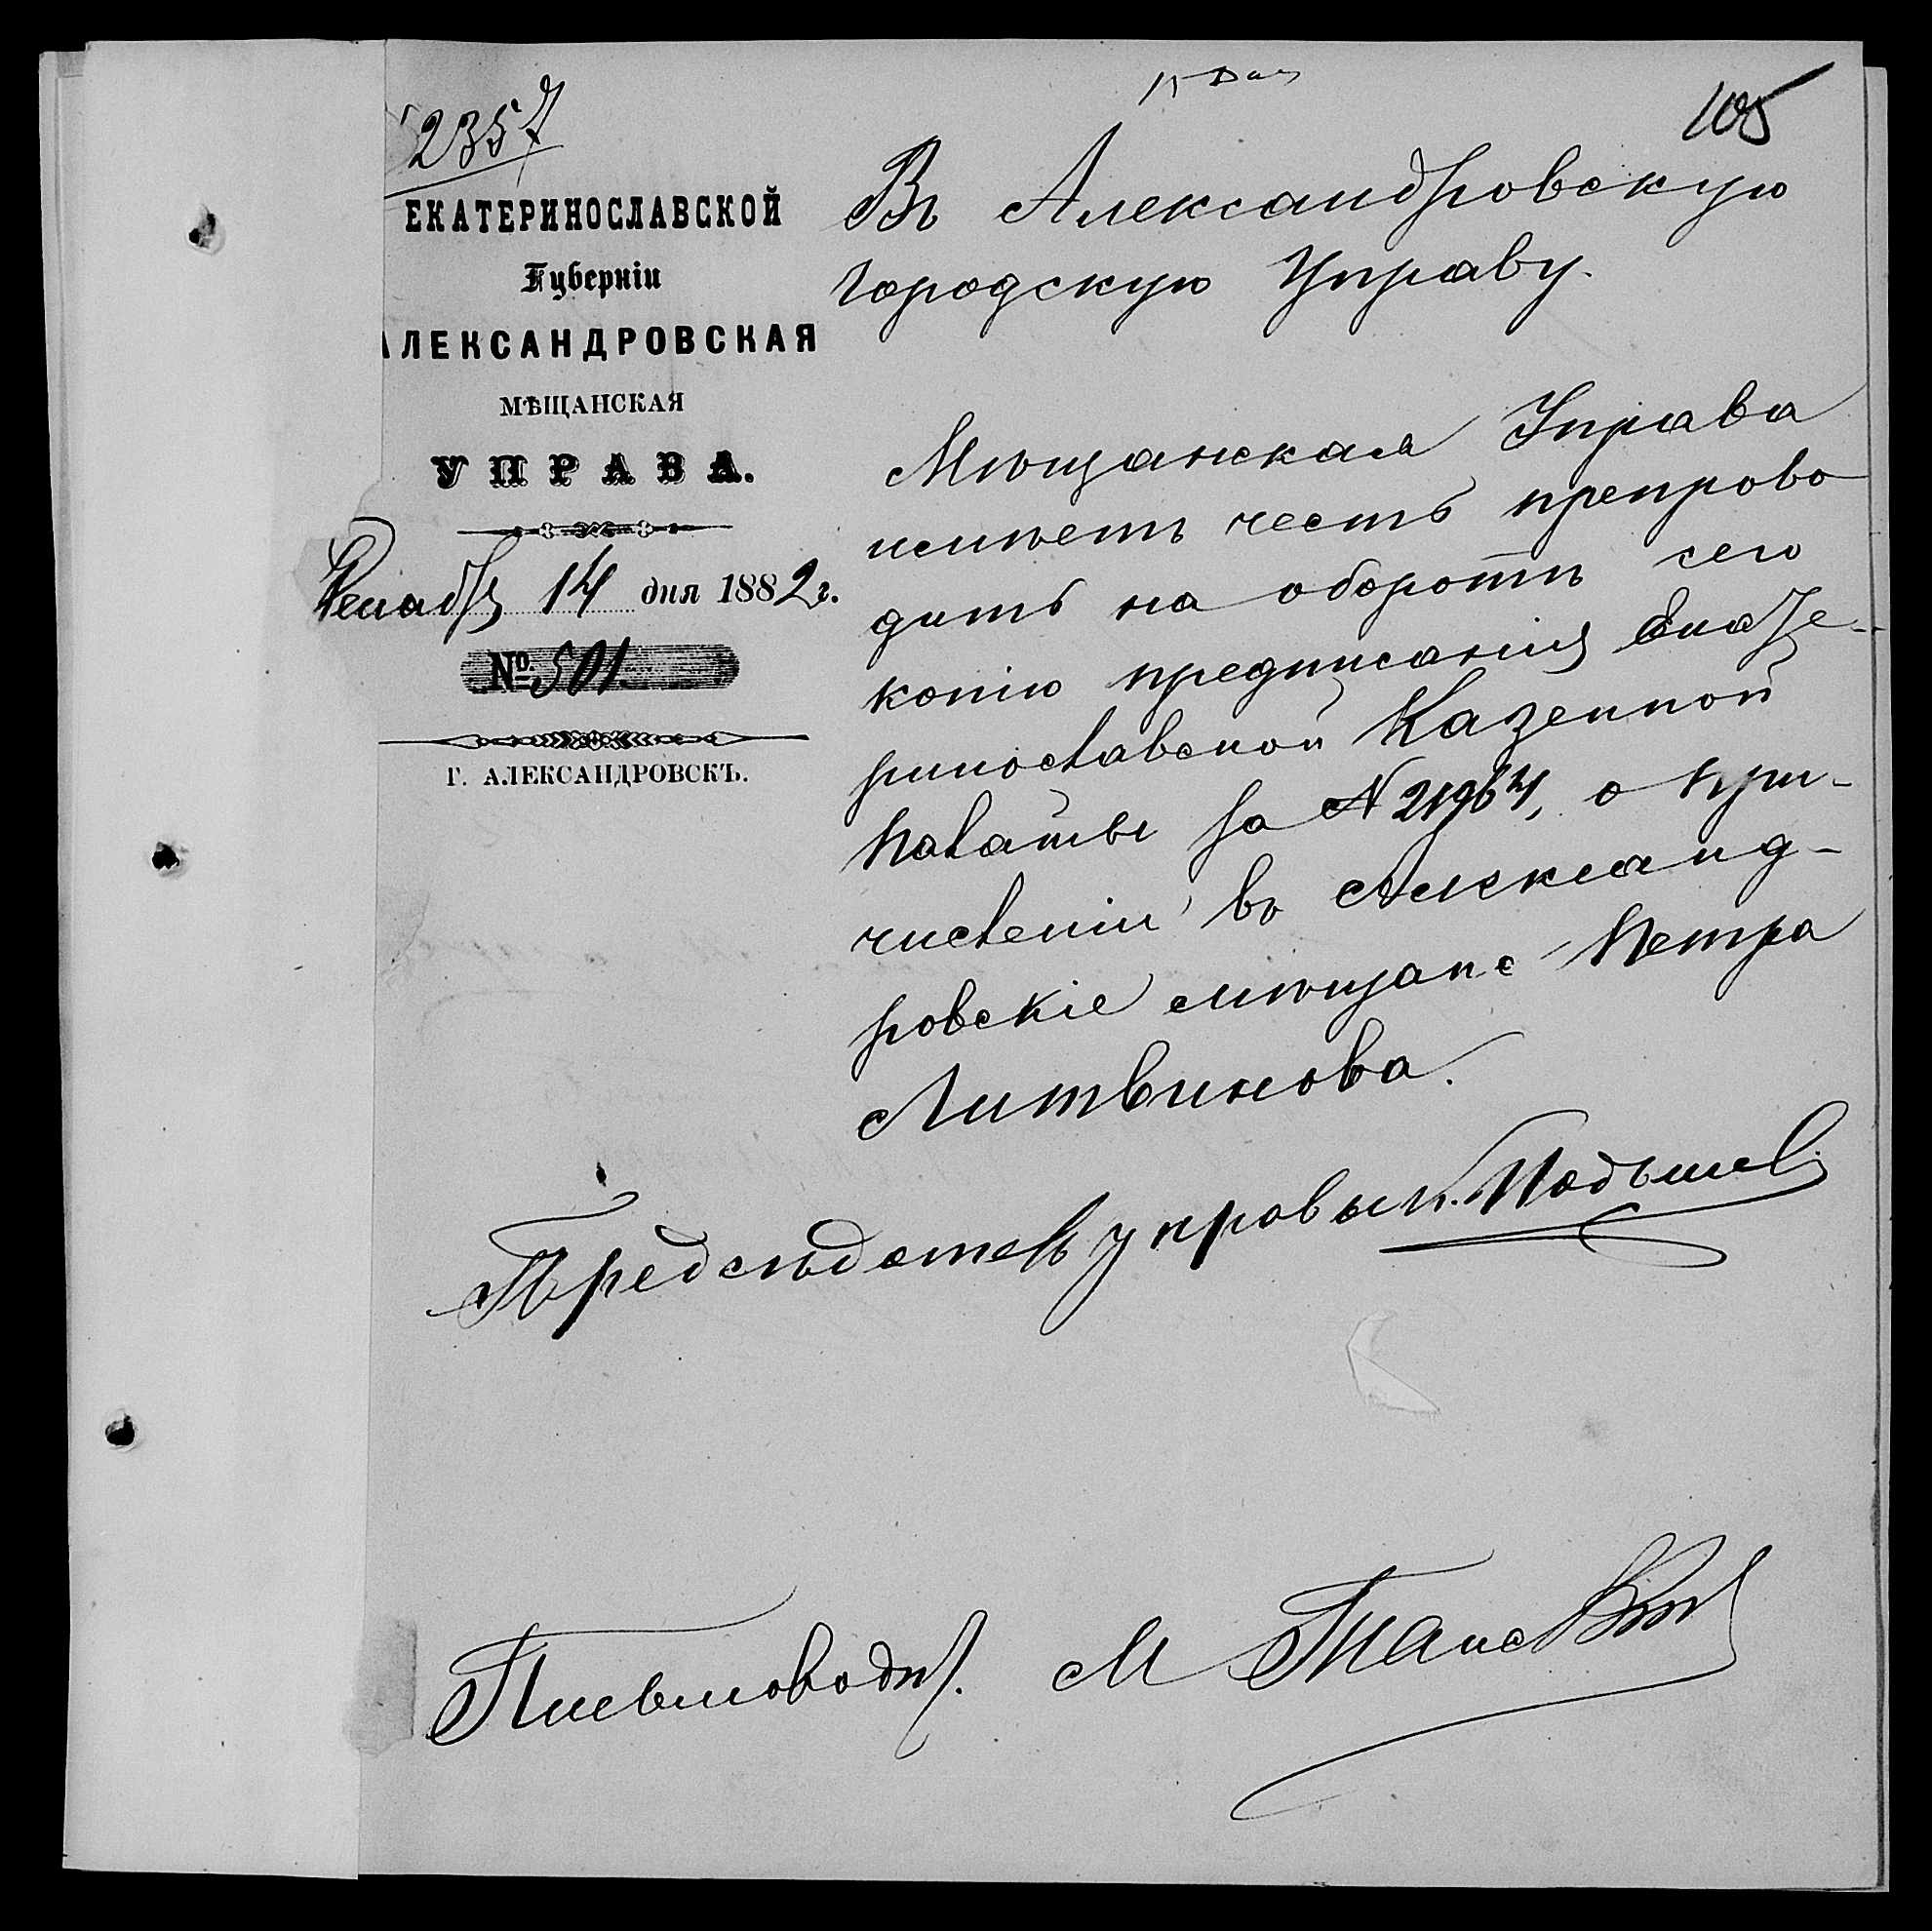 2357
15 Дек
105
ЕКАТЕРИНОСЛАВСКОЙ
Губерніи
АЛЕКСАНДРОВСКАЯ
МѢЩАНСКАЯ
УПРАВА.
Декабря 14 дня 1882 г.
№ 501
Г. АЛЕКСАНДРОВСКЪ.
Въ Александровскую
Городскую Управу.
Мѣщанская Управа
имѣетъ честь препрово
дить на оборотѣ сего
копію предписанія Екате-
ринославской Казенной
Палаты за № 21964, о при-
численіи въ Александ-
ровскіе мѣщане Петра
Литвинова.
Председатель управы
Письмоводит. М